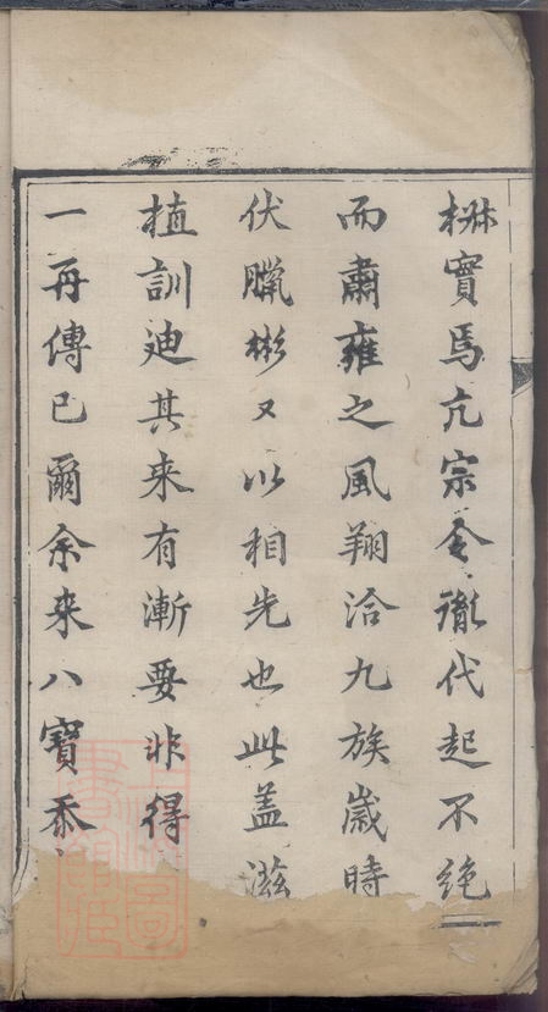 楙實焉亢宗令徽代起不絶
而肅雍之風翔洽九族歲時
伏臘彬又以相先也此盖滋
植訓迪其来有漸要非得
一再傳已爾余来八寶忝
上海圖書館藏